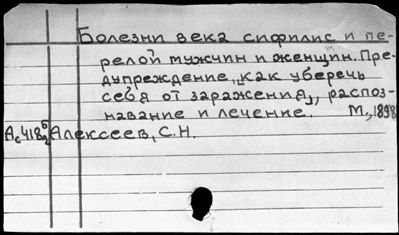 Болезни века сифилис и пе-
релой мужчин и женщин. Пре-
дупреждение, как уберечь
себя от заражения, распоз-
навание и лечение. М., 1898
Алексеев, С.Н.